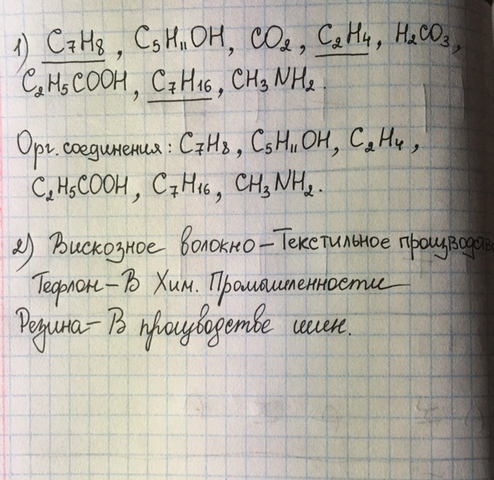 1) C₇H₈, C₅H₁₁OH, CO₂, C₂H₄, H₂CO₃,
C₂H₅COOH, C₇H₁₆, CH₃NH₂.
Орг. соединения: C₇H₈, C₅H₁₁OH, C₂H₄,
C₂H₅COOH, C₇H₁₆, CH₃NH₂.
2) Вискозное волокно – Текстильное производств
Тефлон – В Хим. Промышленности
Резина – В производстве шин.